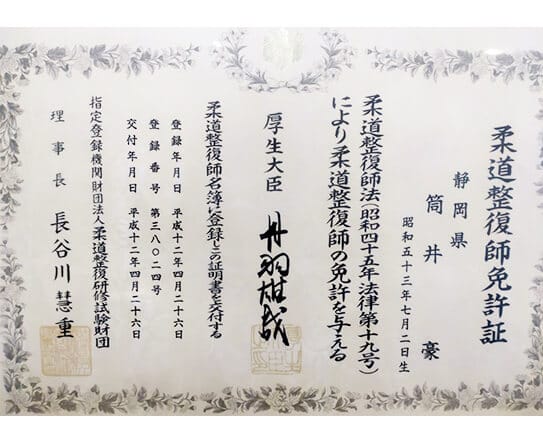 柔道整復師免許証
静岡県
筒井豪
昭和五十三年七月二日生
柔道整復師法(昭和四十五年法律第十九号)
により柔道整復師の免許を与える
厚生大臣 丹羽雄哉
柔道整復師名簿に登録しこの証明書を交付する
登録年月日 平成十二年四月二十六日
登録番号 第三八〇二四号
交付年月日 平成十二年四月二十六日
指定登録機関財団法人柔道整復研修試験財団
理事長 長谷川慧重